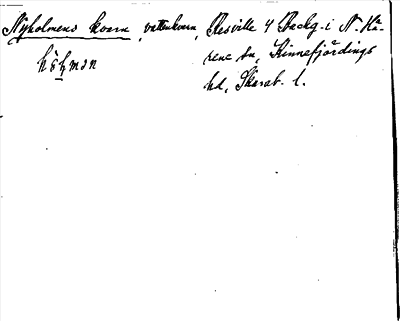 Nyholmens kvarn, vattenkvarn, Resville 4 Backg. i N. Hä-
rene sn, Kinnefjördings
hd, Skarab. l.